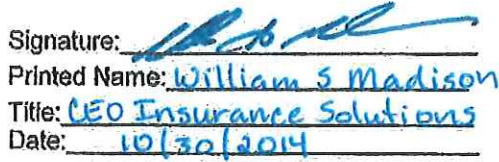 Signature:
Printed Name: William S Madison
Title: CEO Insurance Solutions
Date: 10/30/2014